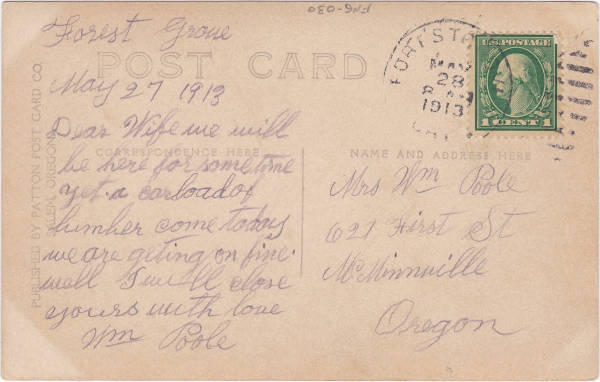 FNG-030
Forest Grove
POST CARD
May 27 1913
Dear Wife we will
be here for some time
yet. a carload of
lumber come today
we are geting on fine.
well I will close
yours with love
Wm Poole
CORRESPONDENCE HERE
PUBLISHED BY PATTON POST CARD CO.
SALEM, OREGON
MAY
28
1913
U.S. POSTAGE
1 CENT 1
NAME AND ADDRESS HERE
Mrs Wm Poole
621 First St
McMinnville
Oregon